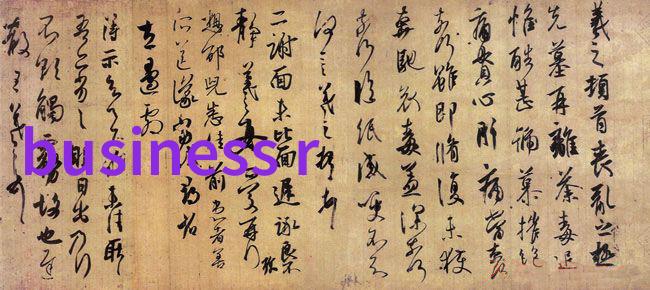 羲之頓首喪亂之極
先墓再離荼毒追
惟酷甚號慕摧絕
痛貫心肝痛當奈何
奈何雖即脩復未獲
奔馳哀毒益深奈何
奈何臨紙感哽不知
何言羲之頓首
二謝面未比面遲詠良不
靜羲之女愛再拜
想邵兒悉佳前患者善
左邊劇
得示知足下猶未佳耿
吾亦劣劣明日出乃行
不欲觸霧故也遲
散王羲之頓首
business r